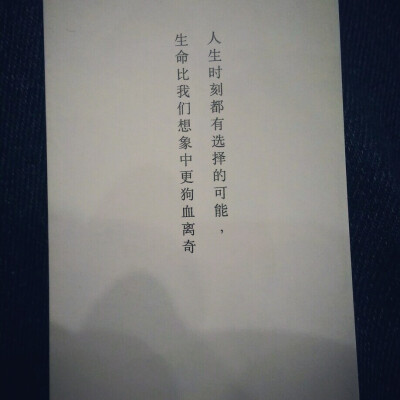 人生时刻都有选择的可能，
生命比我们想象中更狗血离奇